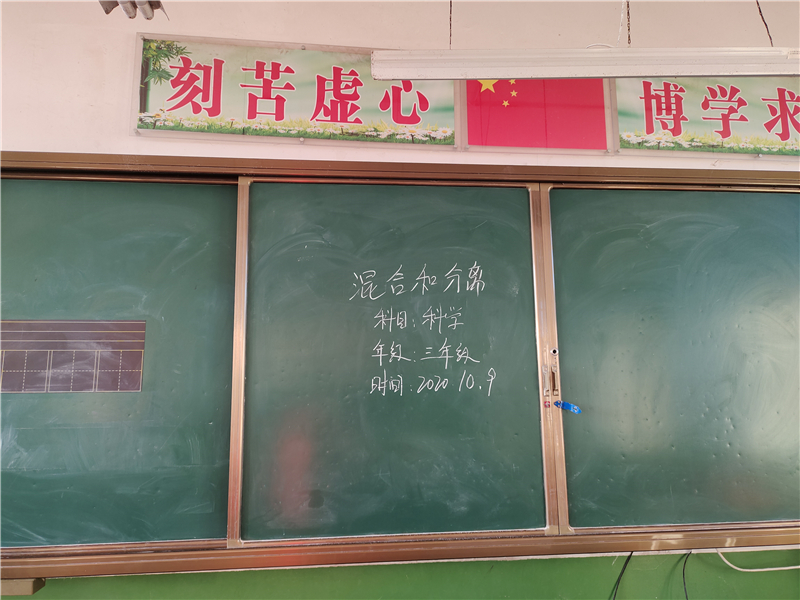 刻苦虚心
博学求
混合和分离
科目:科学
年级:三年级
时间:2020.10.9